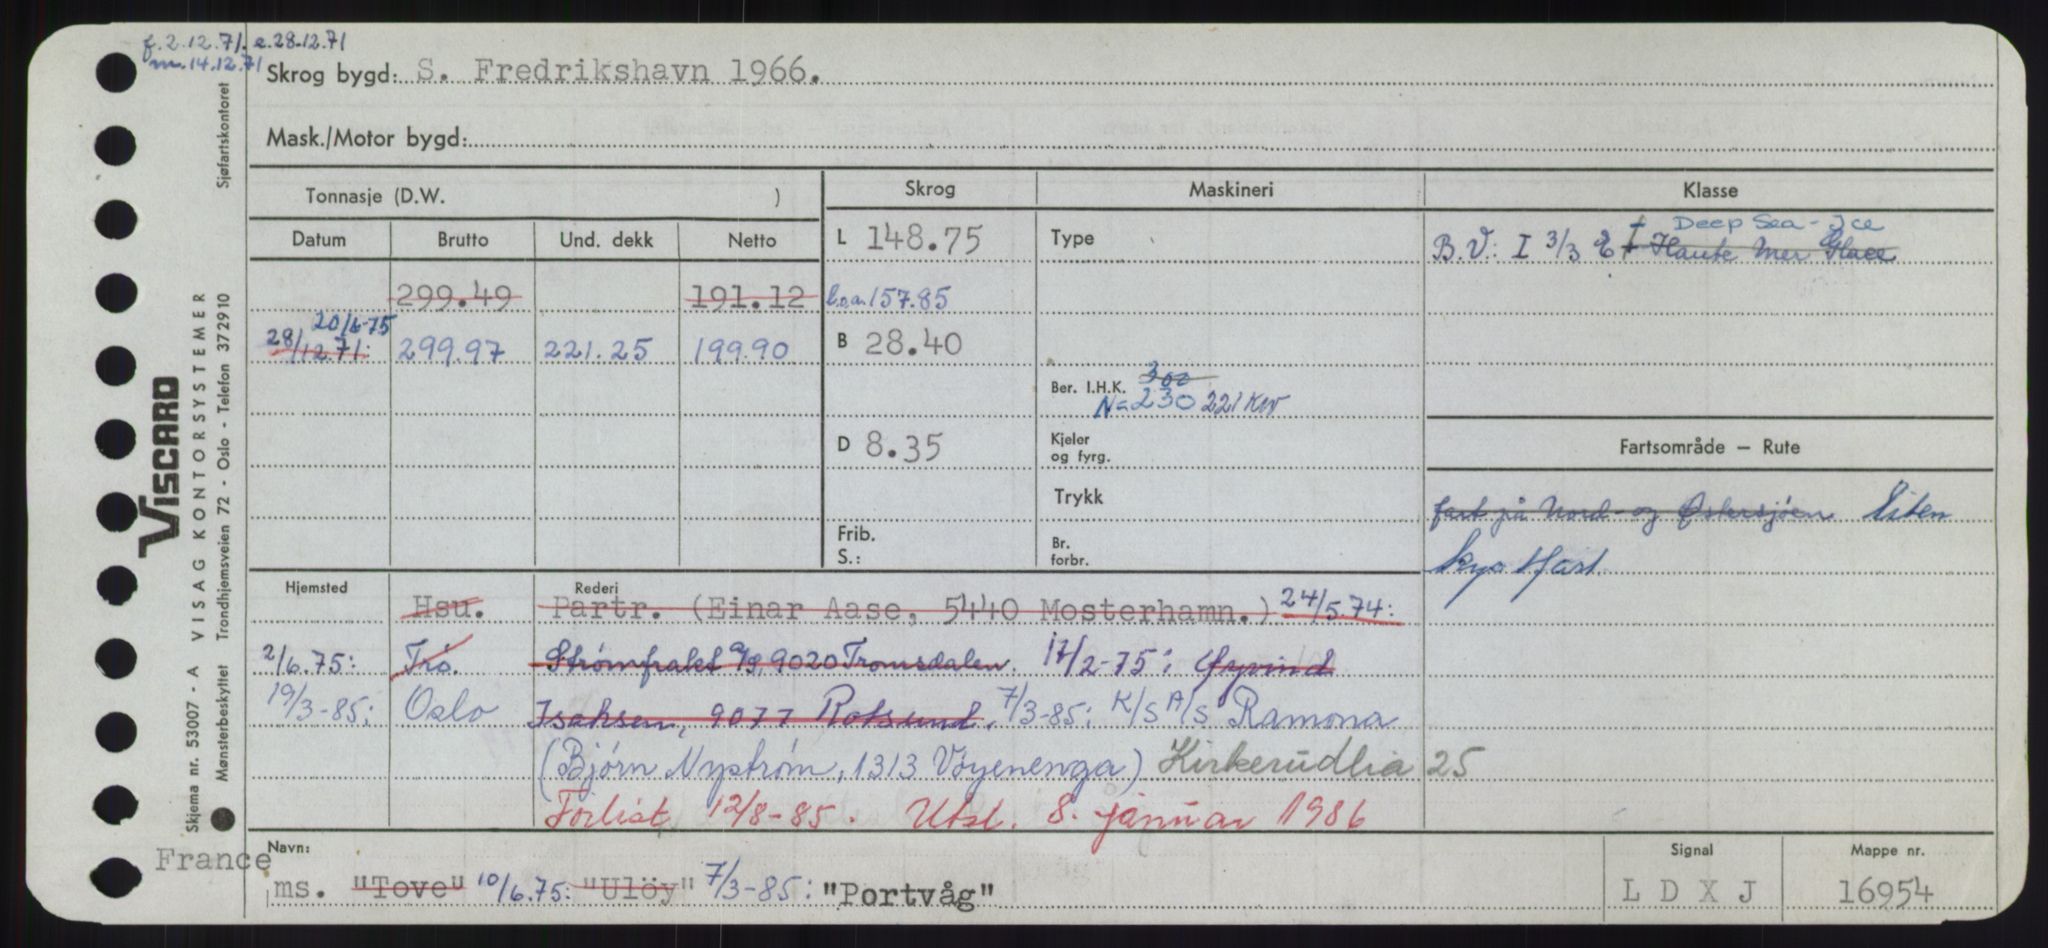 f. 2.12.71. e.28-12.71
m. 14.12.71
Skrog bygd: S. Fredrikshavn 1966.
Mask./Motor bygd:
Tonnasje (D.W. )
Skrog
Maskineri
Klasse
Datum
Brutto
Und. dekk
Netto
L 148.75
Type
Deep Sea-Ice
B.V.: I 3/3 E ‡ Haute Mer Glace
299.49
191.12
l.o.a. 157.85
20/6-75
28/12.71:
299.97
221.25
199.90
B 28.40
300
Ber. I.H.K.
N=230 221 KW
D 8.35
Kjeler
og fyrg.
Fartsområde – Rute
Trykk
fart på Nord- og Østersjøen. Liten
Frib.
S.:
Br.
forbr.
kystfart
Hjemsted
Rederi
Hsu.
Partr. (Einar Aase, 5440 Mosterhamn.) 24/5.74:
2/6.75: Trø. Strømfrakt a/s, 9020 Tromsdalen. 17/2-75: Øyvind
19/3-85: Oslo Isaksen, 9077 Rotsund. 7/3-85: K/S A/S Ramona
(Bjørn Nystrøm, 1313 Vøyenenga) Kirkerudlia 25
Forlist 12/8-85. Utsl. 8. januar 1986
France
Navn:
ms. "Tove" 10/6.75: "Ulöy" 7/3-85: "Portvåg"
Signal
L D X J
Mappe nr.
16954
Sjøfartskontoret
VISCARD
VISAG KONTORSYSTEMER
Trondhjemsveien 72 - Oslo - Telefon 372910
Skjema nr. 53007 - A
Mønsterbeskyttet